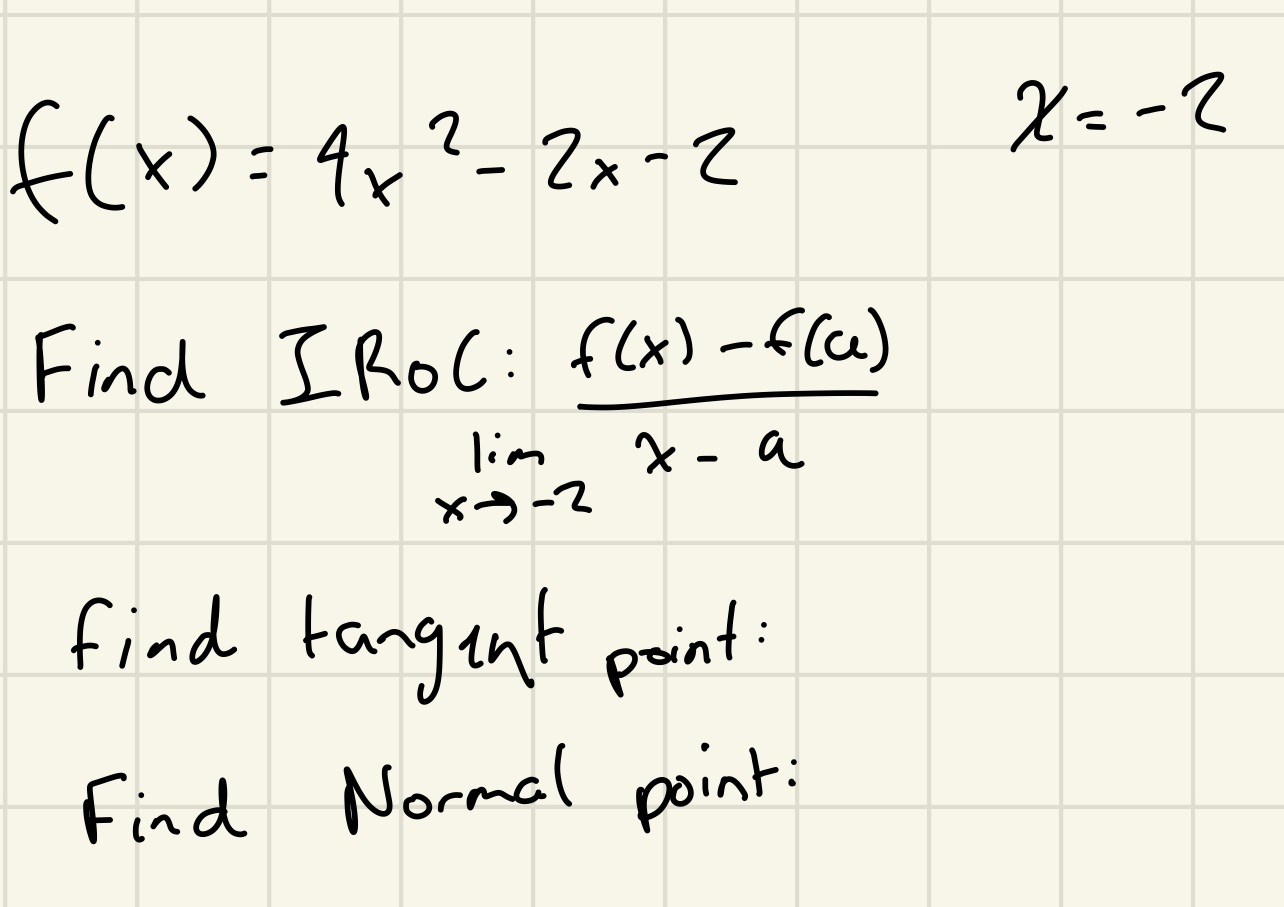 f(x) = 4x² - 2x - 2
x = -2
Find IRoC: f(x) - f(a)
lim x - a
x→-2
find tangent point:
Find Normal point: